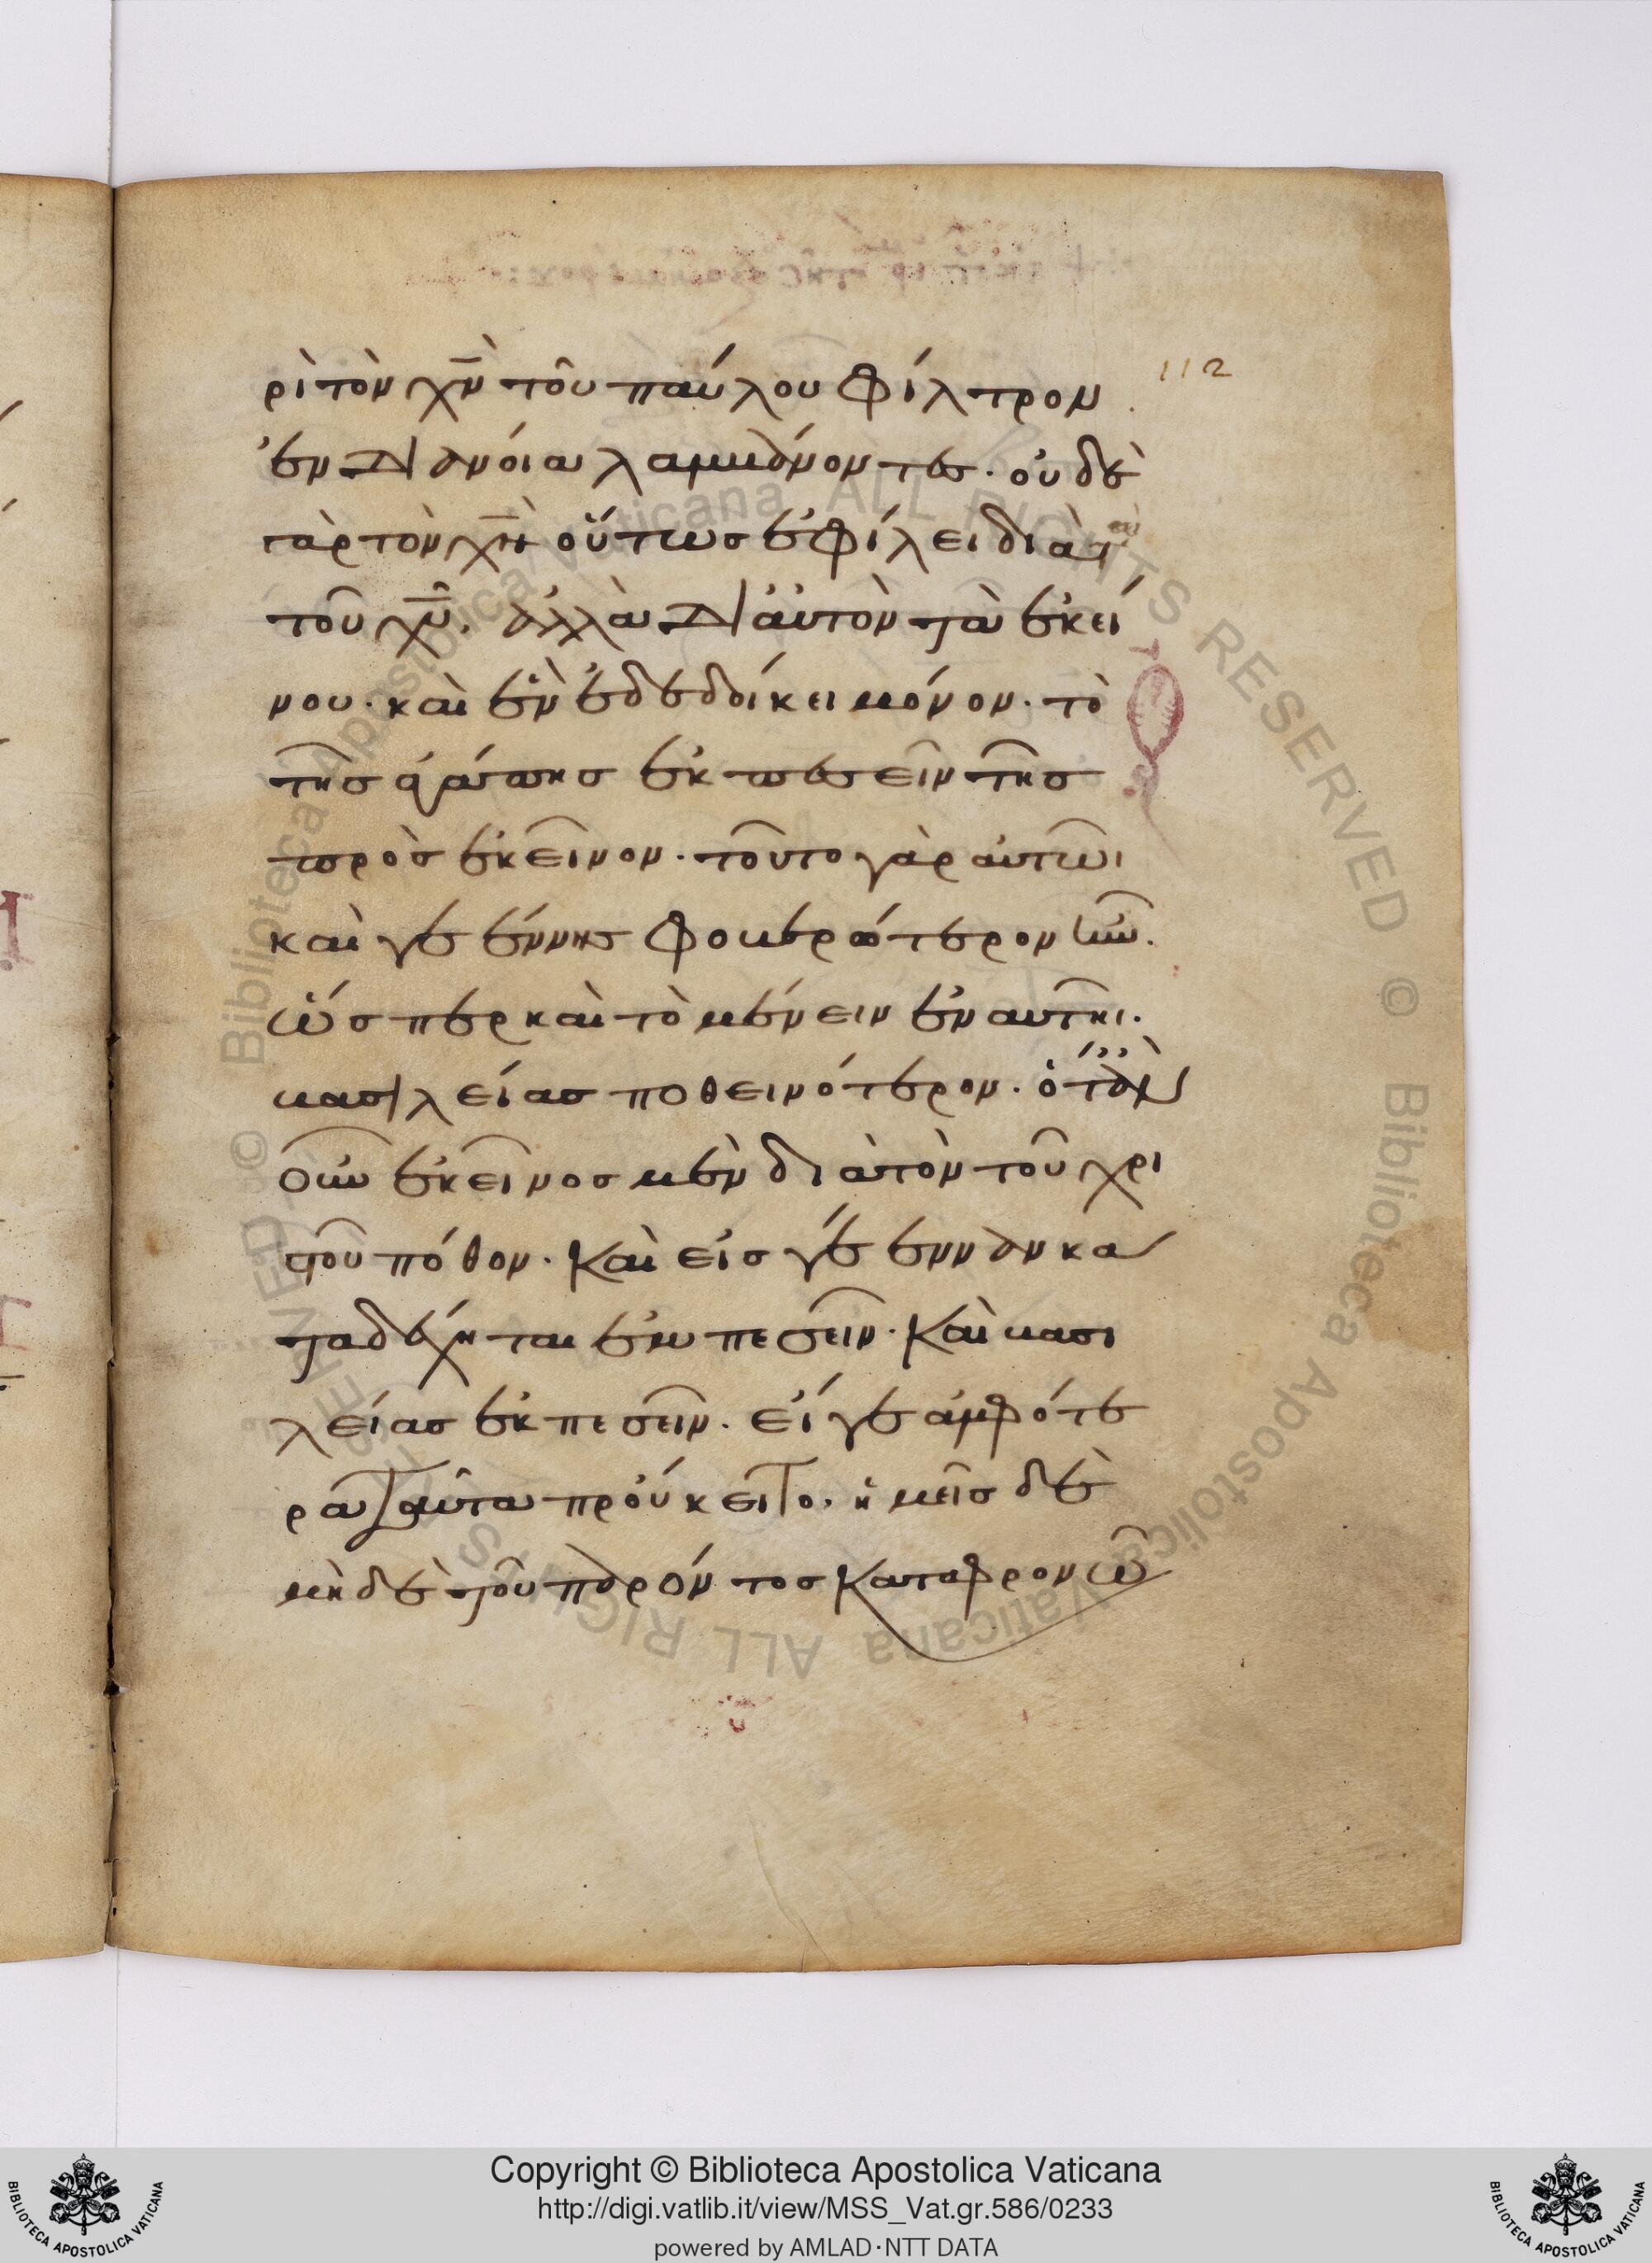 112
ρὶ τὸν χν̅ τοῦ παύλου φίλτρον
ἐν διανοίαι λαμβάνοντες. οὐδὲ
γὰρ τὸν χν̅ οὕτως ἐφίλει διὰ τὰ
τοῦ χυ̅. ἀλλὰ δι αὐτὸν τὰ ἐκεί
νου. καὶ ἓν ἐδεδοίκει μόνον. τὸ
τῆς ἀγάπης ἐκπεσεῖν τῆς
πρὸς ἐκεῖνον. τοῦτο γὰρ αὐτῶι
καὶ γεέννης φοβερώτερον ἦν.
ὥσπερ καὶ τὸ μένειν ἐν αὐτῆι.
βασιλείας ποθεινότερον. ὅταν
οὖν ἐκεῖνος μὲν διὰ τὸν τοῦ χρι
στοῦ πόθον. καὶ εἰς γέενναν κα
ταδέχηται ἐμπεσεῖν. καὶ βασι
λείας ἐκπεσεῖν. εἴγε ἀμφότε
ρα ταῦτα προύκειτο. ἡμεῖς δὲ
μηδὲ τοῦ παρόντος καταφρονῶ
Copyright © Biblioteca Apostolica Vaticana
http://digi.vatlib.it/view/MSS_Vat.gr.586/0233
powered by AMLAD·NTT DATA
BIBLIOTECA APOSTOLICA VATICANA
BIBLIOTECA APOSTOLICA VATICANA
© Biblioteca Apostolica Vaticana ALL RIGHTS RESERVED © Biblioteca Apostolica Vaticana ALL RIGHTS RESERVED